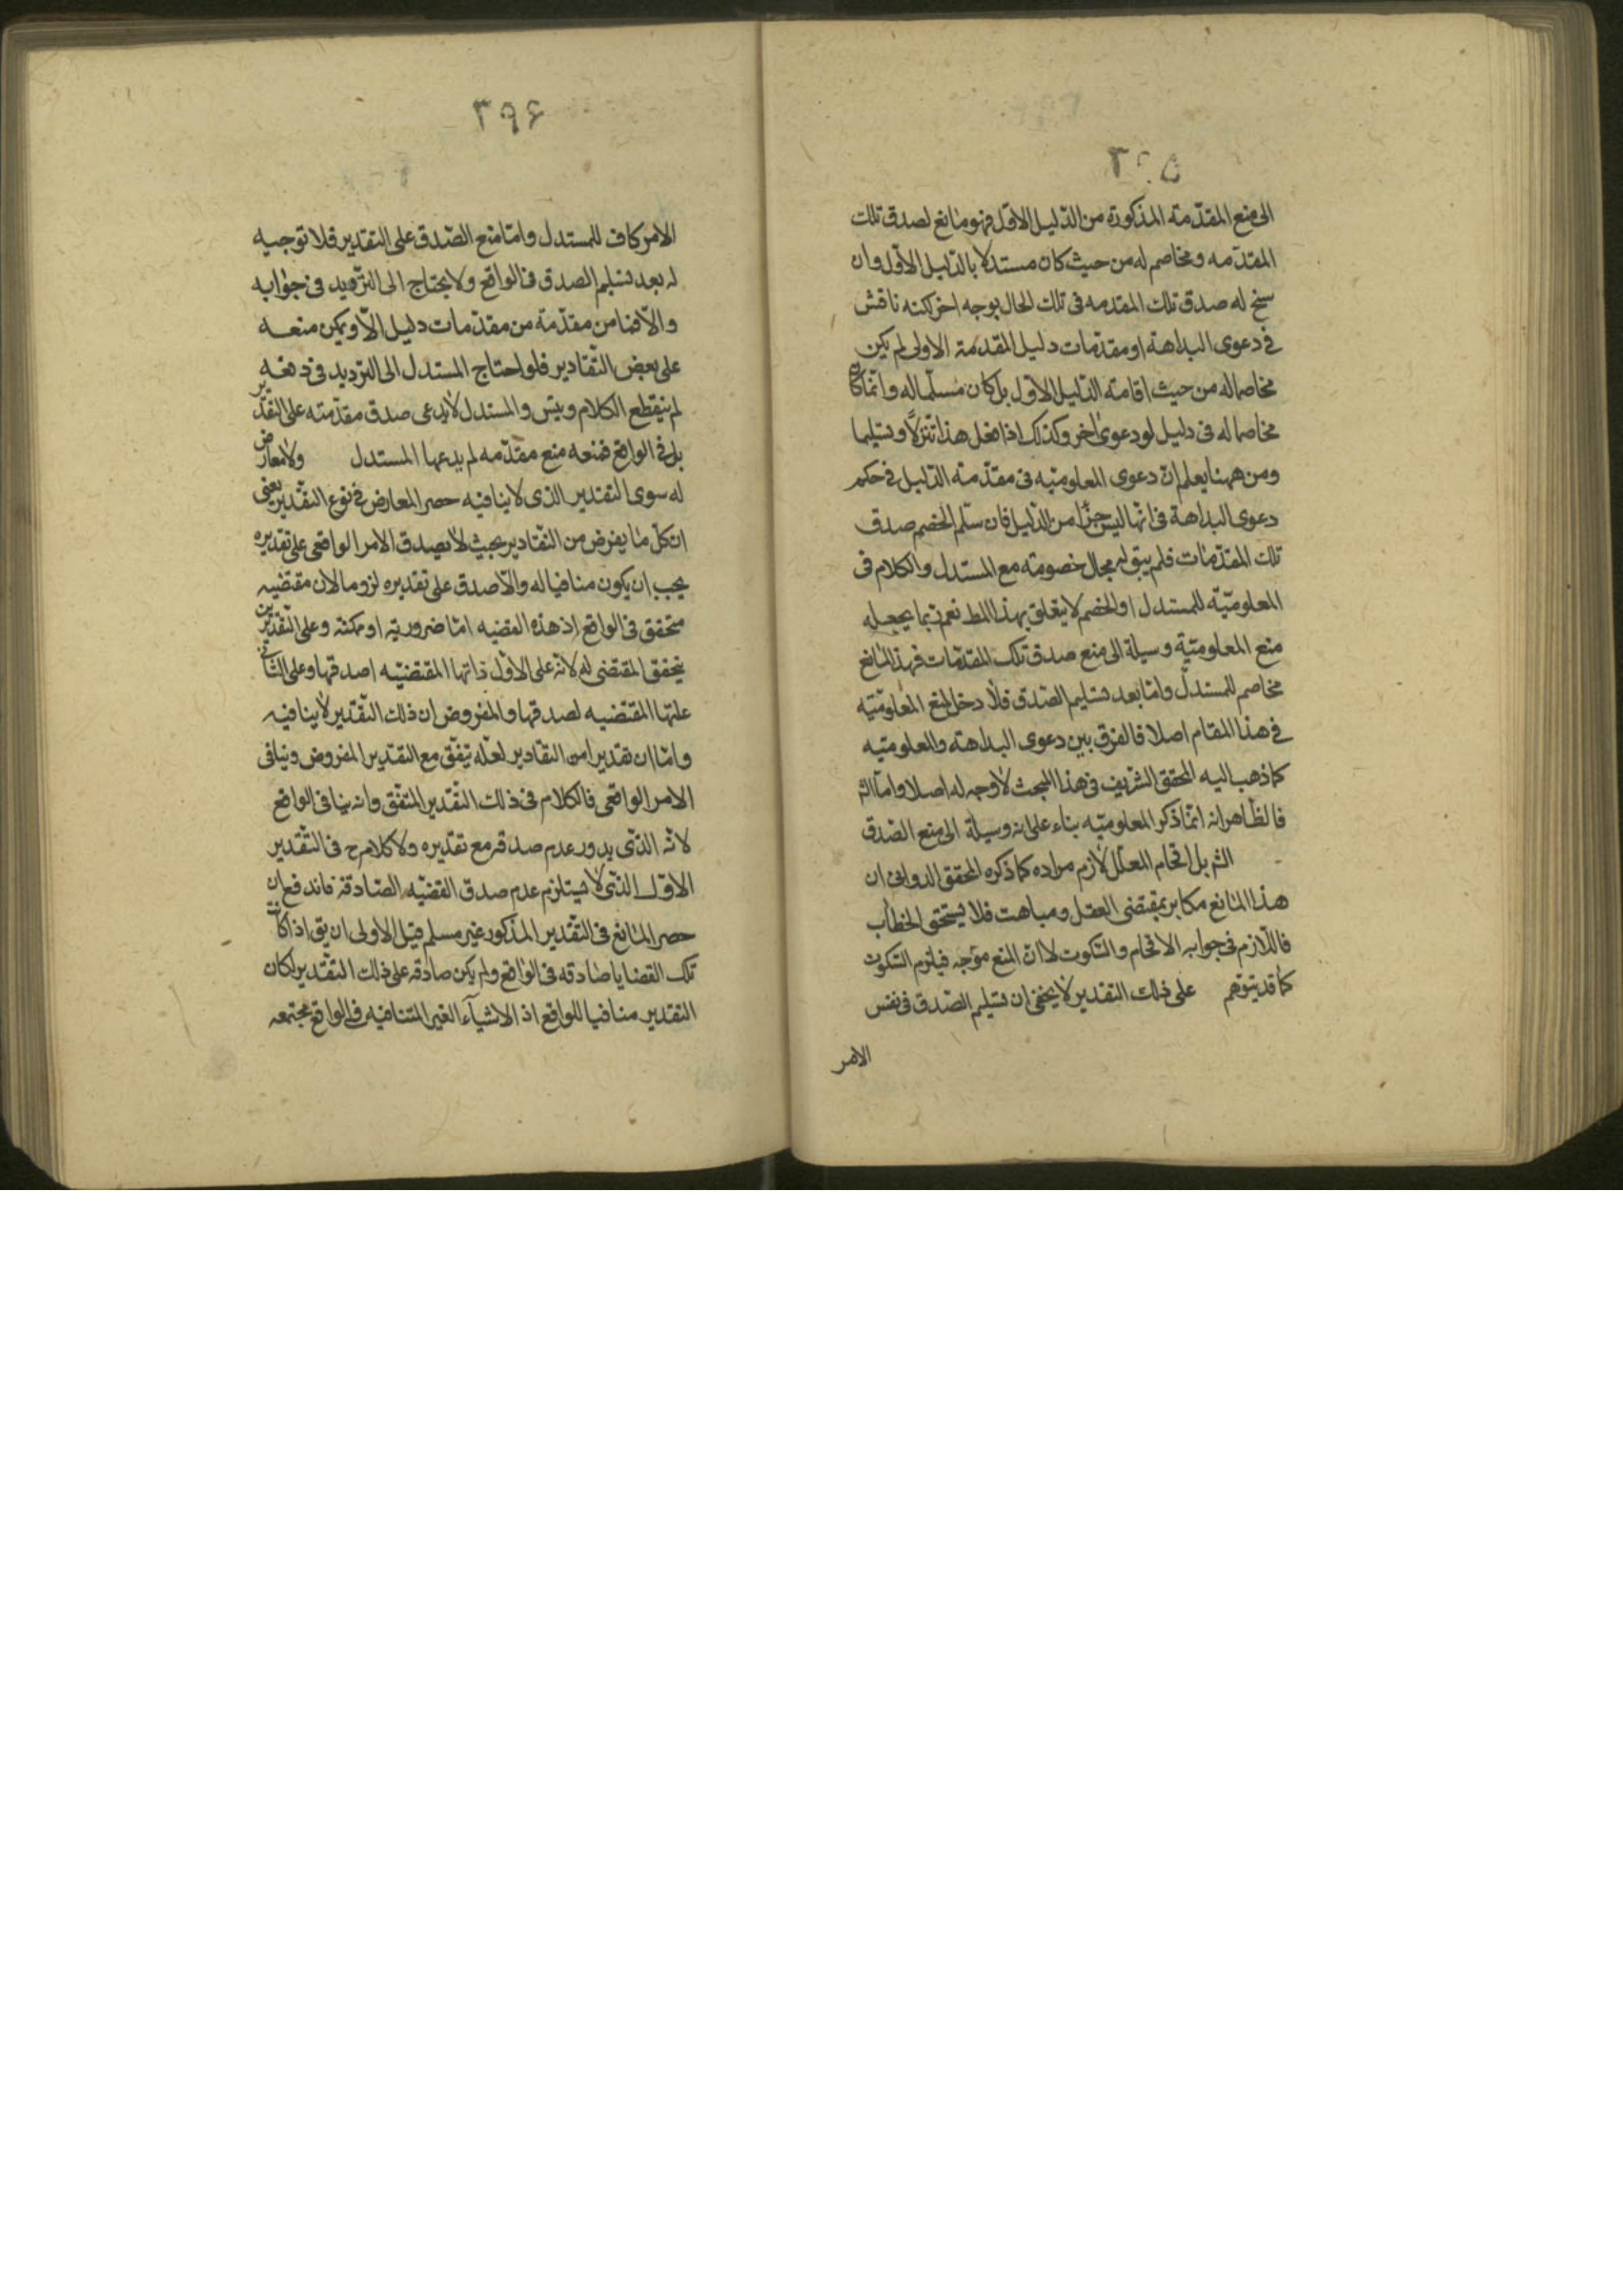 ٣٩٥
الى منع المقدّمته المذكورة من الدّليل الاوّل فهو مانع لصدق تلك
المقدّمه ومخاصم له من حيث كان مستدلا بالدّليل الاوّل وان
سنح له صدق تلك المقدمه فى تلك الحال بوجه اخر لكنه ناقش
فى دعوى البداهة او مقدّمات دليل المقدّمة الاولى لم يكن
مخاصما له من حيث اقامته الدّليل الاول بل كان مسلّما له وانّما كان
مخاصما له فى دليل او دعوى اخر وكذلك اذا فعل هذا تنزلاً وتسليما
ومن ههنا يعلم انّ دعوى المعلوميّه فى مقدّمة الدّليل فى حكم
دعوى البداهة فى انّها ليس جزءًا من الدّليل فان سلّم الخصم صدق
تلك المقدّمات فلم يبق له مجال خصومته مع المستدل والكلام فى
المعلوميّه للمستدل او الخصم لا يتعلق بهذا المط نعم ربما يجعله
منع المعلوميّة وسيلة الى منع صدق تلك المقدّمات فهذا المانع
مخاصم للمستدلّ وامّا بعد تسليم الصّدق فلا دخل لمنع المعلوميّه
فى هذا المقام اصلا فالفرق بين دعوى البداهة والمعلوميّه
كما ذهب اليه المحقق الشّريف فى هذا المبحث لا وجه له اصلا واما الشّ
فالظّاهر انه انّما ذكر المعلوميّه بناء على انه وسيلة الى منع الصّدق
الشّ بل افحام المعلّل لازم مراده كما ذكره المحقق الدوانى ان
هذا المانع مكابر بمقتضى العقل ومباهت فلا يستحق الخطاب
فاللّازم فى جوابه الافحام والسّكوت لا انّ المنع موّجه فيلزم السّكوت
كما قد يتوّهم على ذلك التقدير لا يخفى ان تسليم الصّدق فى نفس
الامر
٣٩۶
الامر كاف للمستدل وامّا منع الصّدق على التقدير فلا توجيه
له بعد تسليم الصدق فى الواقع ولا يحتاج الى التّرديد فى جوابه
والّا فما من مقدّمة من مقدّمات دليل الّا ويمكن منعه
على بعض التّقادير فلو احتاج المستدل الى الترديد فى دفعه
لم ينقطع الكلام وبيّس والمستدل لا يدعى صدق مقدّمته على التقدير
بل فى الواقع فمنعه منع مقدّمه لم يدعها المستدل ولا معارض
له سوى التقدير الذى لا ينافيه حصر المعارض فى نوع التقدير يعنى
ان كلّ ما يفرض من التّقادير بحيث لا يصدق الامر الواقعى على تقديره
يجب ان يكون منافيا له والّا صدق على تقديره لزوما لان مقتضيه
متحقق فى الواقع اذ هذه القضيه امّا ضرورية او ممكنة وعلى التّقديرين
يتحقق المقتضى له لانّه على الاوّل ذاتها المقتضيّه لصدقها وعلى الثّانى
علّتها المقتضيه لصدقها والمفروض ان ذلك التّقدير لا ينافيه
وامّا ان تقديرا من التقادير لعلّه يتفّق مع التقدير المفروض وينافى
الامر الواقعى فالكلام فى ذلك التّقدير المتّفق وانه ينافى الواقع
لانّه الذّى يدور عدم صدقه مع تقديره ولا كلام ح فى التّقدير
الاوّل الذّى لا يستلزم عدم صدق القضيّه الصّادقة فاندفع ان
حصر المانع فى التّقدير المذكور غير مسلم قيل الاولى ان يق اذا كانت
تلك القضايا صادقه فى الواقع ولم يكن صادقه على ذلك التّقدير لكان
التقدير منافيا للواقع اذ الاشيآء الغير المتنافيه فى الواقع مجتمعه